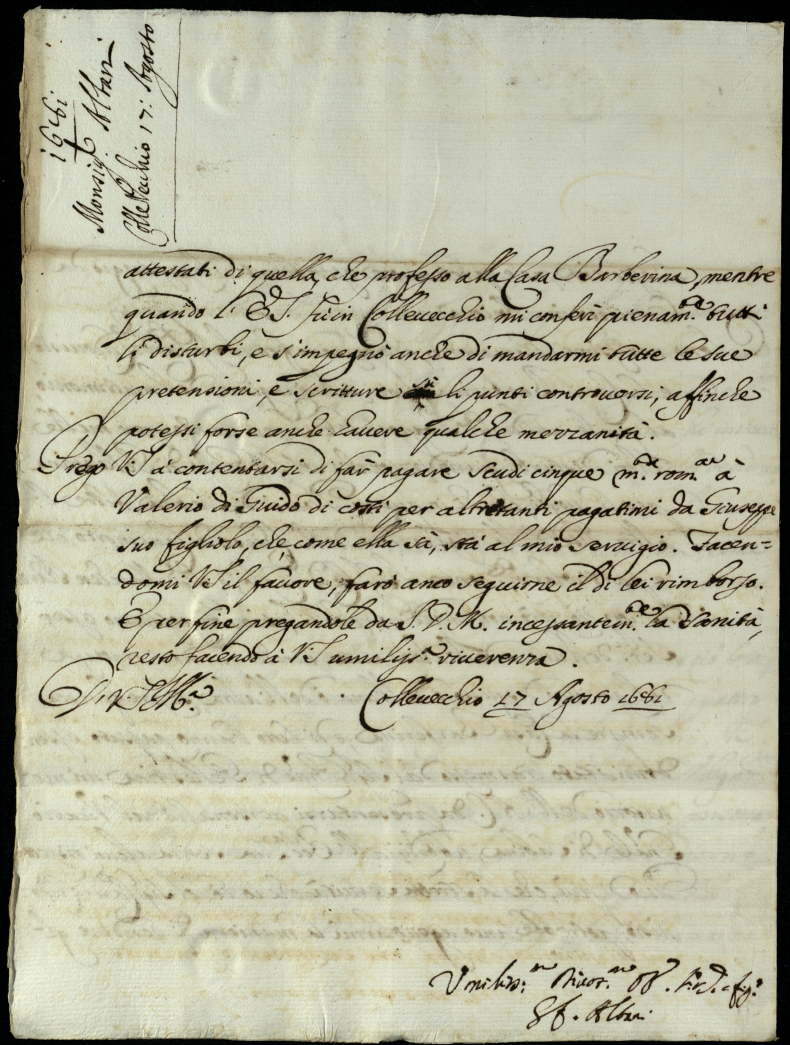 1661
Monsig.r Altieri
Collevecchio 17: Agosto
attestati di quella, che professo alla Casa Barberina, mentre
quando l' E.S. fù in Colleuecchio mi conferì pienam.te tutti
li disturbi, e s'impegnò anche di mandarmi tutte le sue
pretensioni, e scritture sù li punti controuersi, affinche
potessi forse anche hauere qualche mezzanità.
Prego V.S. à contentarsi di far pagare scudi cinque m.ta rom.na à
Valerio di Guido di costì per altretanti pagatimi da Giuseppe
suo figliolo, che come ella sà, stà al mio seruigio. Facen=
domi V.S. il fauore, farò anco seguirne il di lei rimborso.
E per fine pregandole da S.D.M. incessantem.te la Sanità,
resto facendo à V.S. umiliss.a riuerenza.
Di V.S. Ill.ma Colleuecchio 17 Agosto 1661